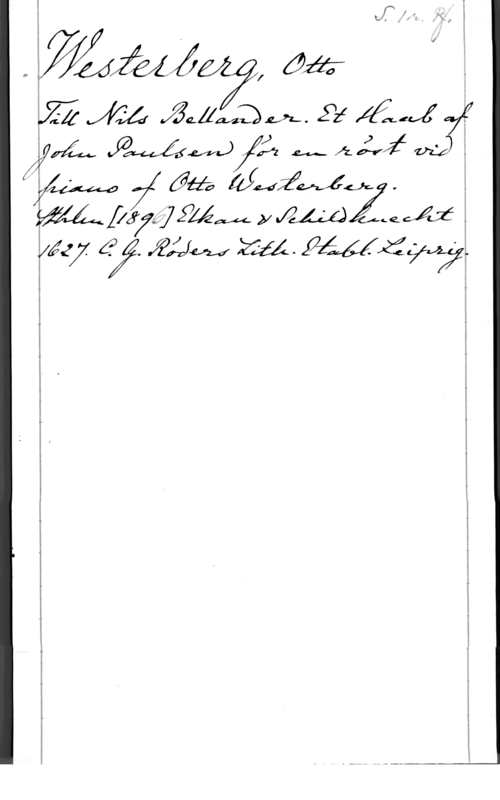 S. 1 r. Pf.
Westerberg, Otto
Till Nils Bellander. Et Haab af
John Paulsen för en röst vid
piano af Otto Westerberg.
Sthlm [1896] Elkan & Schildknecht
1627. C. G. Röders Lith. Etabl. Leipzig.